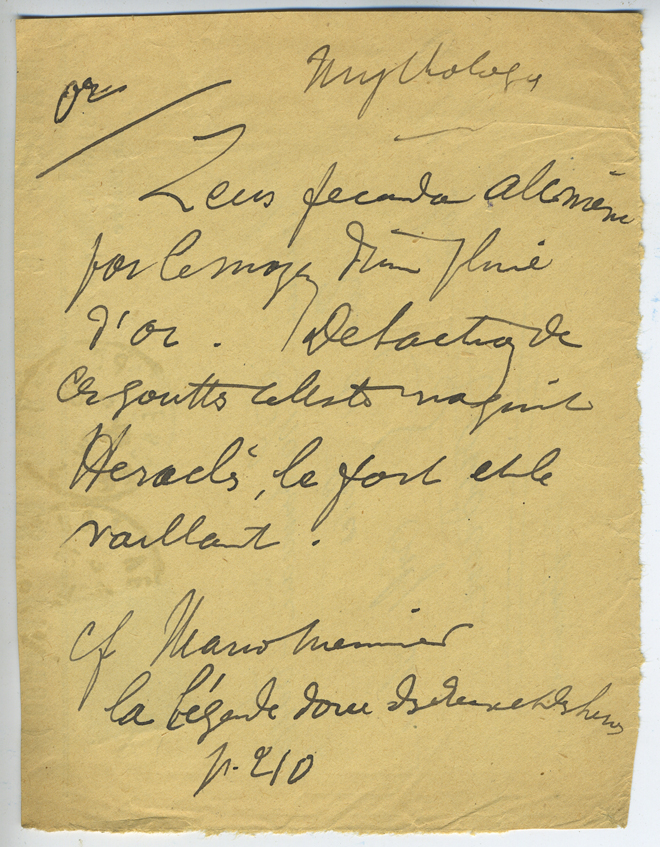 or
Mythologe
Zeus féconda Alcmène
par le moyen d'une pluie
d'or. De l'action de
ces gouttes célestes naquit
Heraclès, le fort et le
vaillant.
cf Mario Meunier
la légende dorée des dieux et des héros
p. 210